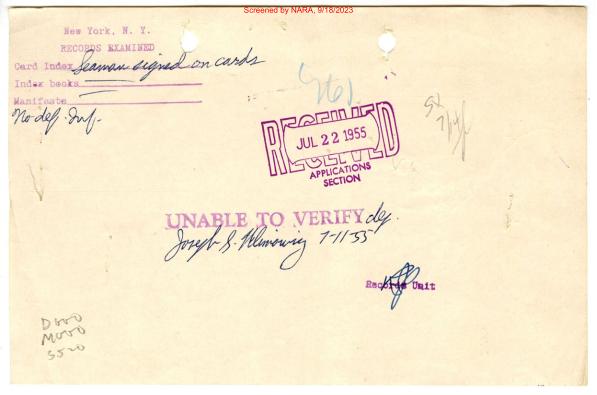 Screened by NARA, 9/18/2023
New York, N. Y.
RECORDS EXAMINED
Card Index Seaman signed on cards
Index books
Manifests
No def. Inf.
RECEIVED
JUL 22 1955
APPLICATIONS
SECTION
UNABLE TO VERIFY dep.
Joseph S. Klimowicz 7-11-55
Records Unit
D000
M000
5520